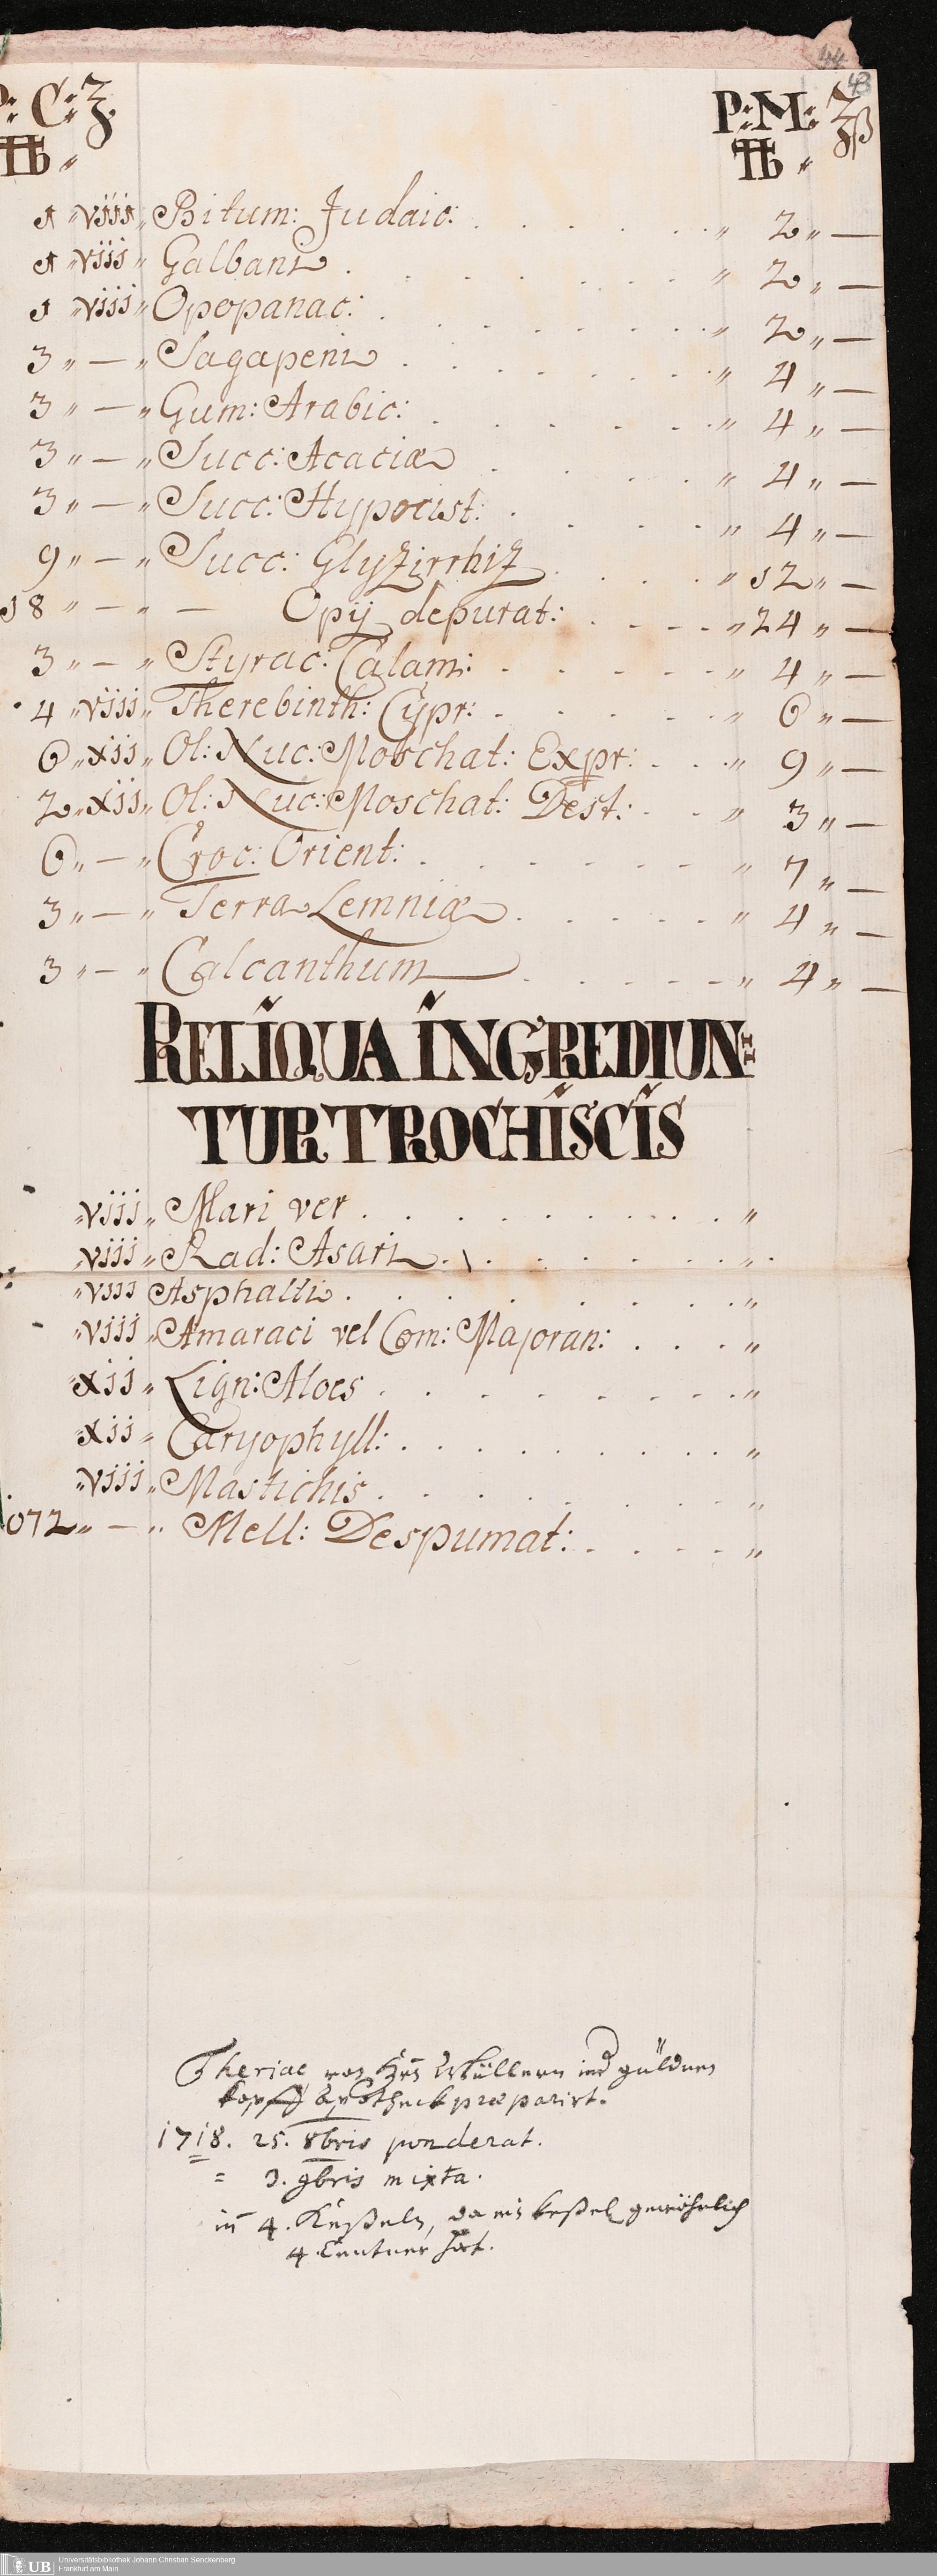 44
43
P: C: ℥. P: M: ℥β
℔ „ ℔ „
1 „ viij „ Bitum: Judaic: . . . . . „ 2 „ —
1 „ viij „ Galbani . . . . . „ 2 „ —
1 „ viij „ Opopanac: . . . . . „ 2 „ —
3 „ — „ Sagapeni . . . . . „ 4 „ —
3 „ — „ Gum: Arabic: . . . . . „ 4 „ —
3 „ — „ Succ: Acaciæ . . . . „ 4 „ —
3 „ — „ Succ: Hypocist: . . . . „ 4 „ —
9 „ — „ Succ: Glyzirrhiz . . . . „ 12 „ —
18 „ — „ — Opij depurat: . . . . „ 24 „ —
3 „ — „ Styrac: Calam: . . . . . „ 4 „ —
4 „ viij „ Therebinth: Cypr: . . . . . „ 6 „ —
6 „ xij „ Ol: Nuc: Moschat: Expr: . . . „ 9 „ —
2 „ xij „ Ol: Nuc: Moschat: Dest: . . „ 3 „ —
6 „ — „ Croc: Orient: . . . . . . „ 7 „ —
3 „ — „ Terra Lemniæ . . . . . „ 4 „ —
3 „ — „ Calcanthum . . . . . „ 4 „ —
RELIQUA INGREDIUN:
TUR TROCHISCIS
„ viij „ Mari ver . . . . . . . . „
„ viij „ Rad: Asari . . . . . . . „
„ viij Asphalti . . . . . . . . „
„ viij „ Amaraci vel Com: Majoran: . . . „
„ xij „ Lign: Aloes . . . . . . . . „
„ xij „ Caryophyll: . . . . . . . . „
„ viij „ Mastichis . . . . . . . . „
072 „ — „ Mell: Despumat: . . . . „
Theriac von Hrn Müllern ind güldnen
kopff Apotheck præparirt.
1718. 25. 8bris ponderat.
= 3. 9bris mixta.
in 4. Keßeln, da ein keßel gewöhnlich
4. Centner hat.
UB Universitätsbibliothek Johann Christian Senckenberg
Frankfurt am Main